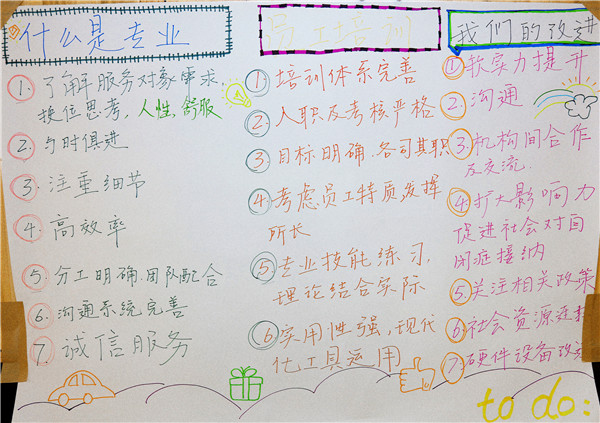 什么是专业
1. 了解服务对象需求.
换位思考，人性.舒服
2. 与时俱进
3. 注重细节
4. 高效率
5. 分工明确.团队配合
6. 沟通系统完善
7. 诚信服务
员工培训
1. 培训体系完善
2. 入职及考核严格
3. 目标明确.各司其职
4. 考虑员工特质,发挥
所长
5. 专业技能练习,
理论结合实际
6. 实用性强,现代
化工具运用
我们的改进
1. 软实力提升
2. 沟通
3. 机构间合作
及交流.
4. 扩大影响力
促进社会对自
闭症接纳
5. 关注相关政策
6. 社会资源连接
7. 硬件设备改进
to do: